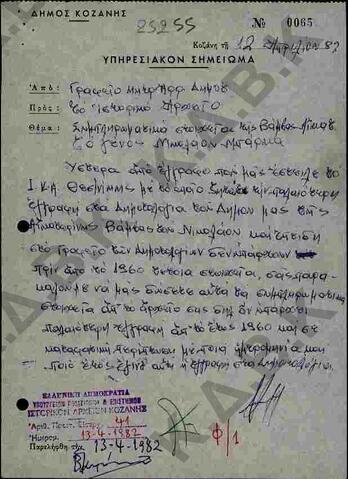 ΔΗΜΟΣ ΚΟΖΑΝΗΣ
25255
Nº 0065
Κοζάνη τῇ 12 Ἀπριλίου 82
ΥΠΗΡΕΣΙΑΚΟΝ ΣΗΜΕΙΩΜΑ
Ἀπό: Γραφεῖο Μητρ/ων Δήμου
Πρός: το Ιστορικό Αρχείο
Θέμα: Συμπληρωματικά στοιχεία της Βάμβας
το γένος
Ύστερα από έγγραφο που μας έστειλε το
Ι.Κ.Α. Θεσ/νίκης με το οποίο ζητάει την παλαιότερη
έγγραφη στα Δημοτολόγια του Δήμου μας της
Αικατερίνης Βάμβας του Νικολάου και επειδή
στο Γραφείο των Δημοτολογίων δεν υπάρχουν
πριν από το 1960 τέτοια στοιχεία, σας παρα-
καλούμε να μας δώσετε αυτά τα συμπληρωματικά
στοιχεία απ' το αρχείο σας δηλ. αν υπάρχει
παλαιότερη έγγραφη απ' το έτος 1960 και σε
καταφατική περίπτωση με ποια ημερομηνία και
ποιό έτος έγινε αυτή η έγγραφη στα Δημοτολόγια.
ΕΛΛΗΝΙΚΗ ΔΗΜΟΚΡΑΤΙΑ
ΥΠΟΥΡΓΕΙΟΝ ΠΟΛΙΤΙΣΜΟΥ & ΕΠΙΣΤΗΜΩΝ
ΙΣΤΟΡΙΚΟΝ ΑΡΧΕΙΟΝ ΚΟΖΑΝΗΣ
Ἀριθ. Πρωτ. Εἰσερχ. 41
Ἡμερομ. 13-4-1982
Παρελήφθη τῇ 13-4-1982
Φ/1
Κ.Δ.Β.Κ